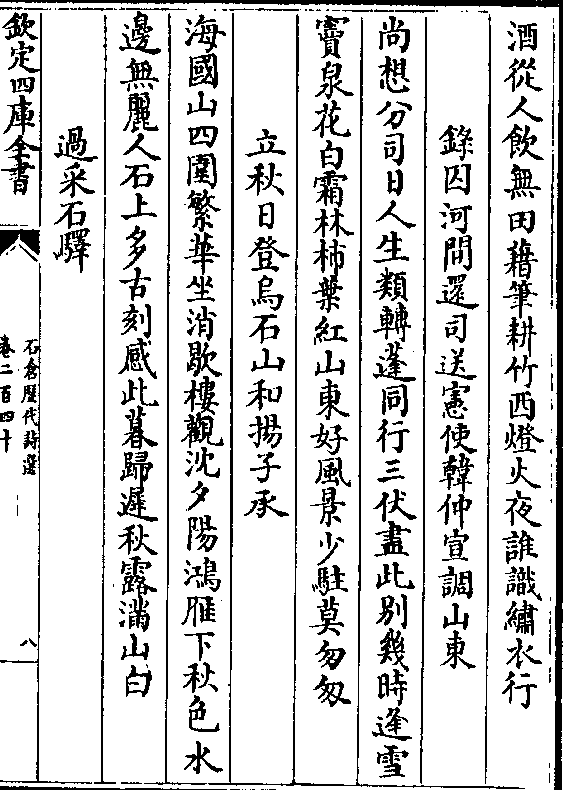 酒從人飲無田藉筆耕竹西燈火夜誰識繡衣行
錄囚河間還司送憲使韓仲宣調山東
尚想分司日人生類轉蓬同行三伏盡此別幾時逢雪
竇泉花白霜林柿葉紅山東好風景少駐莫匆匆
立秋日登烏石山和揚子承
海國山四圍繁華坐消歇樓觀沈夕陽鴻雁下秋色水
邊無麗人石上多古刻感此暮歸遲秋露滿山白
過采石驛
欽定四庫全書
石倉歷代詩選
卷二百四十
八